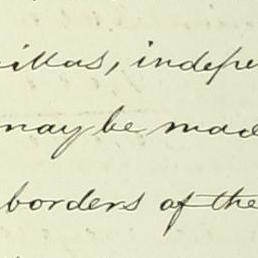 illas, indepe
may be made
borders of the